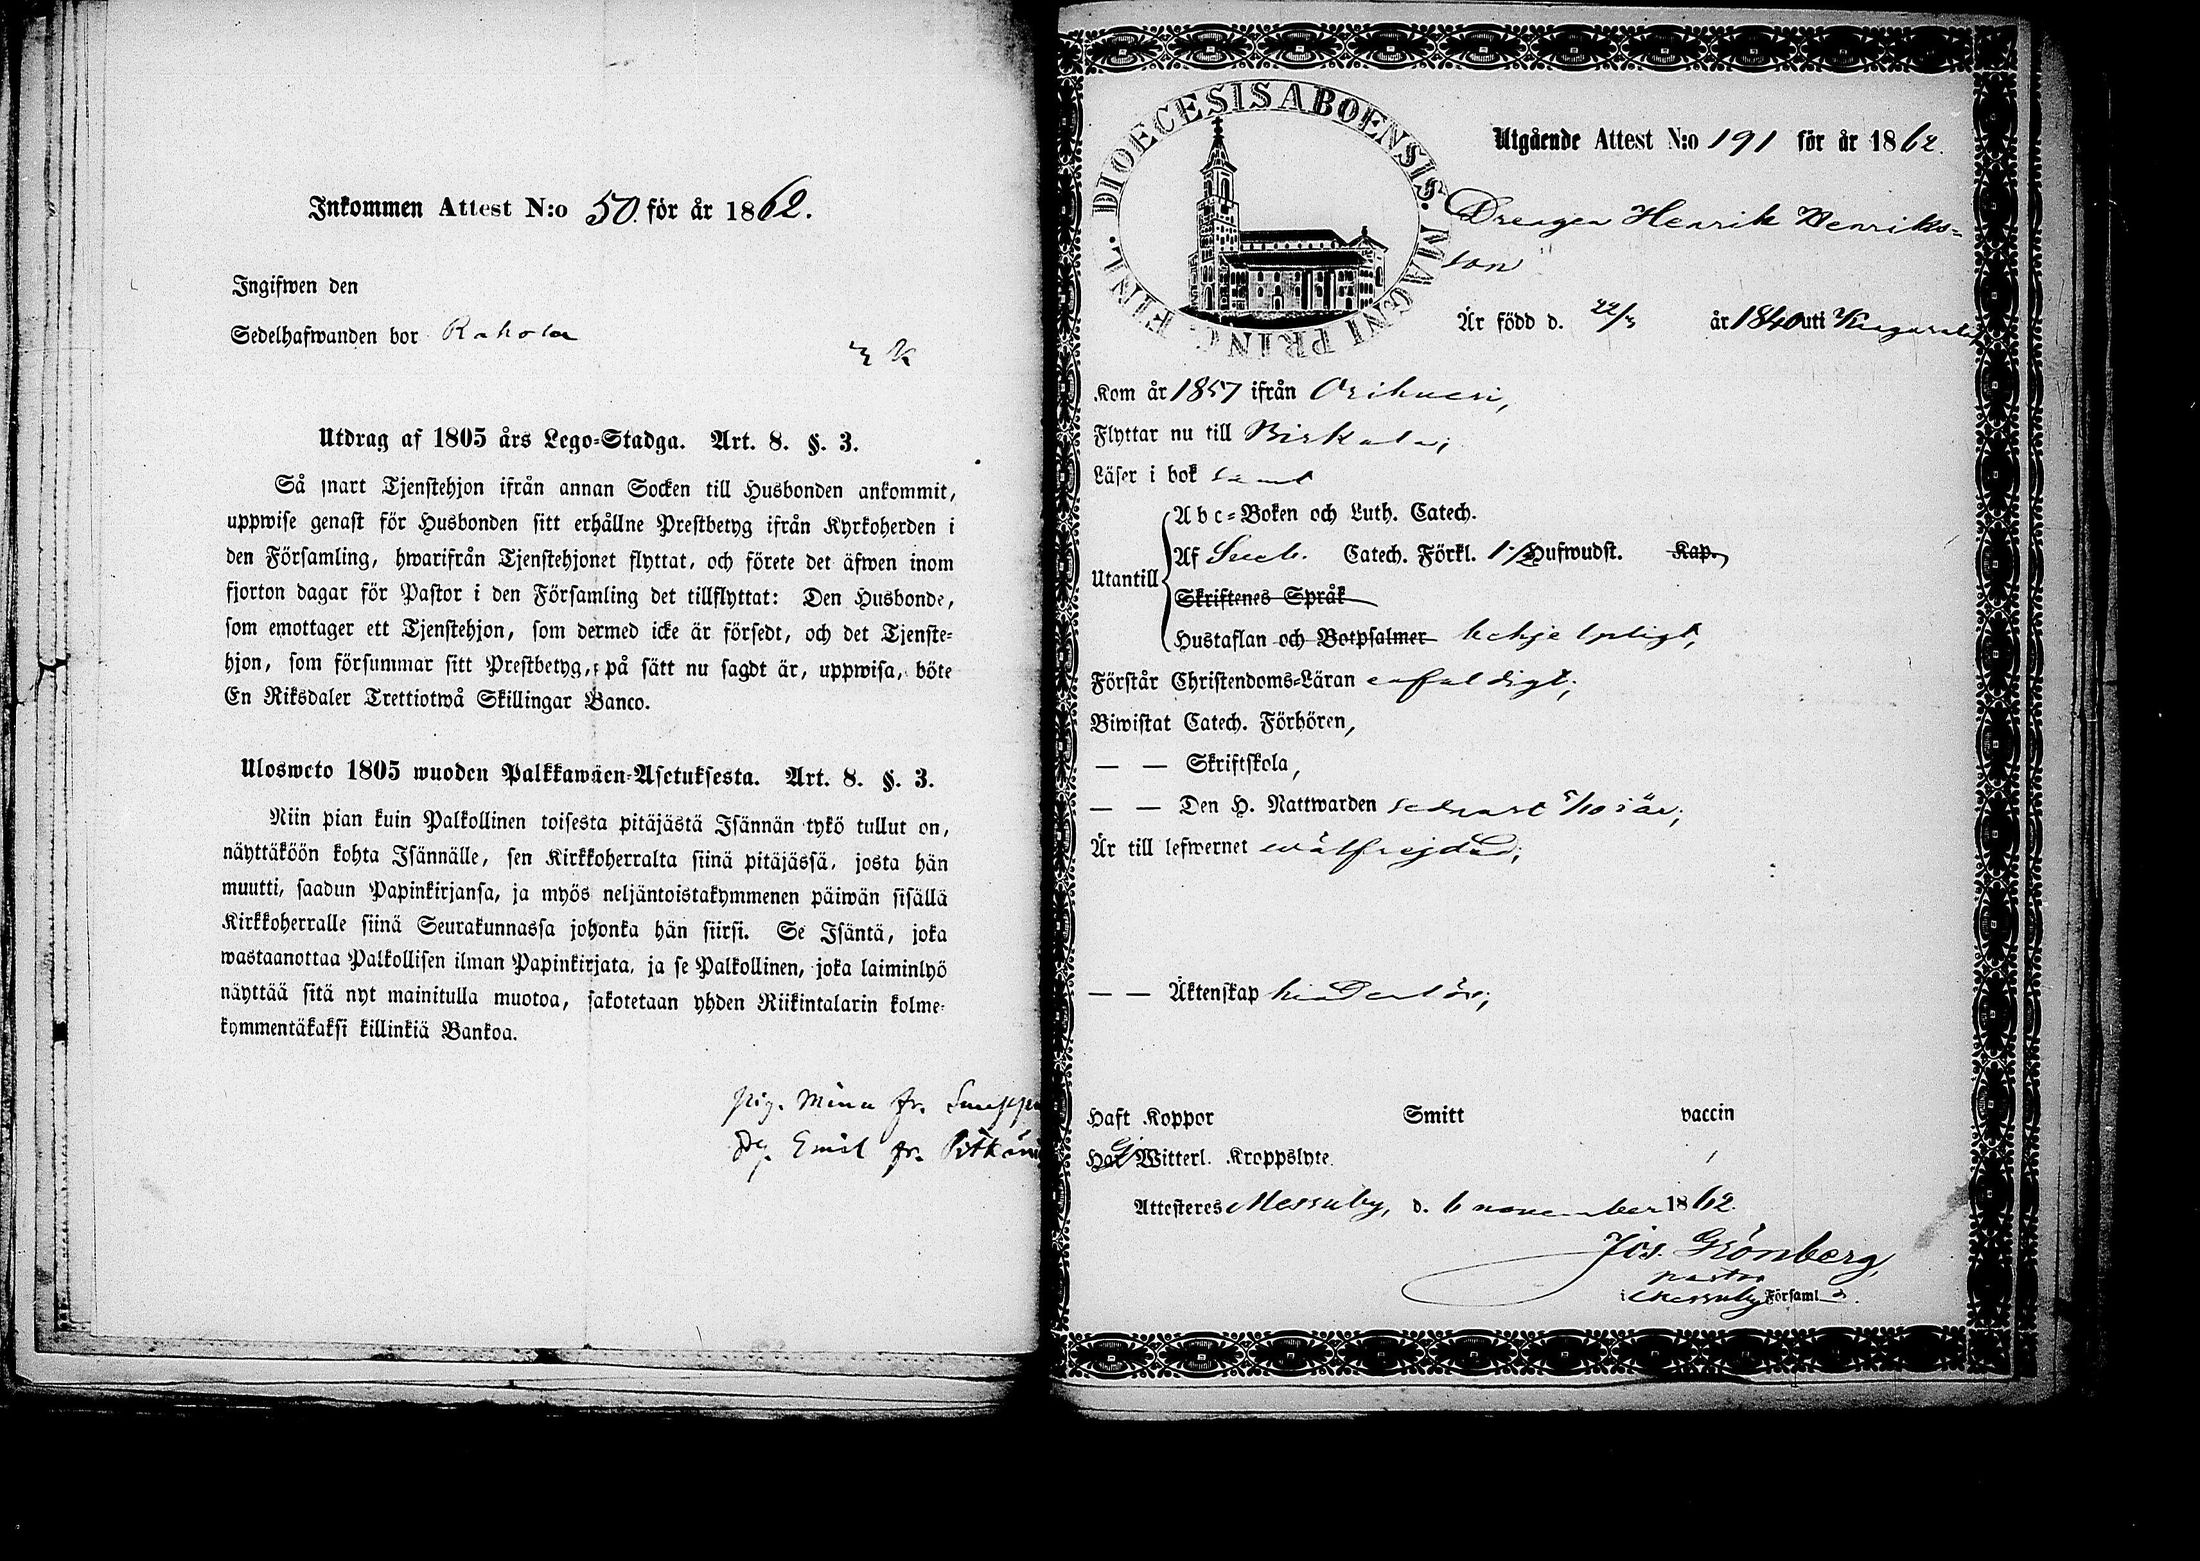 Inkommen Attest N:o 50. för år 1862.
Ingifwen den
Sedelhafwanden bor Rahola
Utdrag af 1805 års Lego=Stadga. Art. 8. §. 3.
Så snart Tjenstehjon ifrån annan Socken till Husbonden ankommit,
uppwise genast för Husbonden sitt erhållne Prestbetyg ifrån Kyrkoherden i
den Församling, hwarifrån Tjenstehjonet flyttat, och förete det äfwen inom
fjorton dagar för Pastor i den Församling det tillflyttat: Den Husbonde,
som emottager ett Tjenstehjon, som dermed icke är försedt, och det Tjenste=
hjon, som försummar sitt Prestbetyg, på sätt nu sagdt är, uppwisa, böte
En Riksdaler Trettiotwå Skillingar Banco.
Ulosweto 1805 wuoden Palkkawäen=Asetuksesta. Art. 8. §. 3.
Niin pian kuin Palkollinen toisesta pitäjästä Isännän tykö tullut on,
näyttäköön kohta Isännälle, sen Kirkkoherralta siinä pitäjässä, josta hän
muutti, saadun Papinkirjansa, ja myös neljäntoistakymmenen päiwän sisällä
Kirkkoherralle siinä Seurakunnassa johonka hän siirsi. Se Isäntä, joka
wastaanottaa Palkollisen ilman Papinkirjata, ja se Palkollinen, joka laiminlyö
näyttää sitä nyt mainitulla muotoa, sakotetaan yhden Riikintalarin kolme=
kymmentäkaksi killinkiä Bankoa.
pig. Mina fr.
Dg. Emil fr.
DIOECESIS ABOENSIS. MAGNI PRINC. FINL.
Utgående Attest N:o 191 för år 1862.
Drengen Henrik Henriks=
son
Är född d. 22/3 år 1840 uti Kangasala
Kom år 1857 ifrån Orihvesi,
Flyttar nu till Birkala;
Läser i bok samt
Utantill
Abc=Boken och Luth. Catech.
Af Sveb. Catech. Förkl. 1 1/2 Hufwudst. Kap.
Skriftenes Språk
Hustaflan och Botpsalmer behjelpligt,
Förstår Christendoms=Läran enfaldigt;
Biwistat Catech. Förhören,
— — Skriftskola,
— — Den H. Nattwarden sednast 5/10 i år;
Är till lefwernet wälfrejdad;
— — Äktenskap hinderlös;
Haft Koppor Smitt vaccin
Har Ej Witterl. Kroppslyte
Attesteres Messuby, d. 6 november 1862.
Jos. Grönberg,
pastor
i Messuby Församl